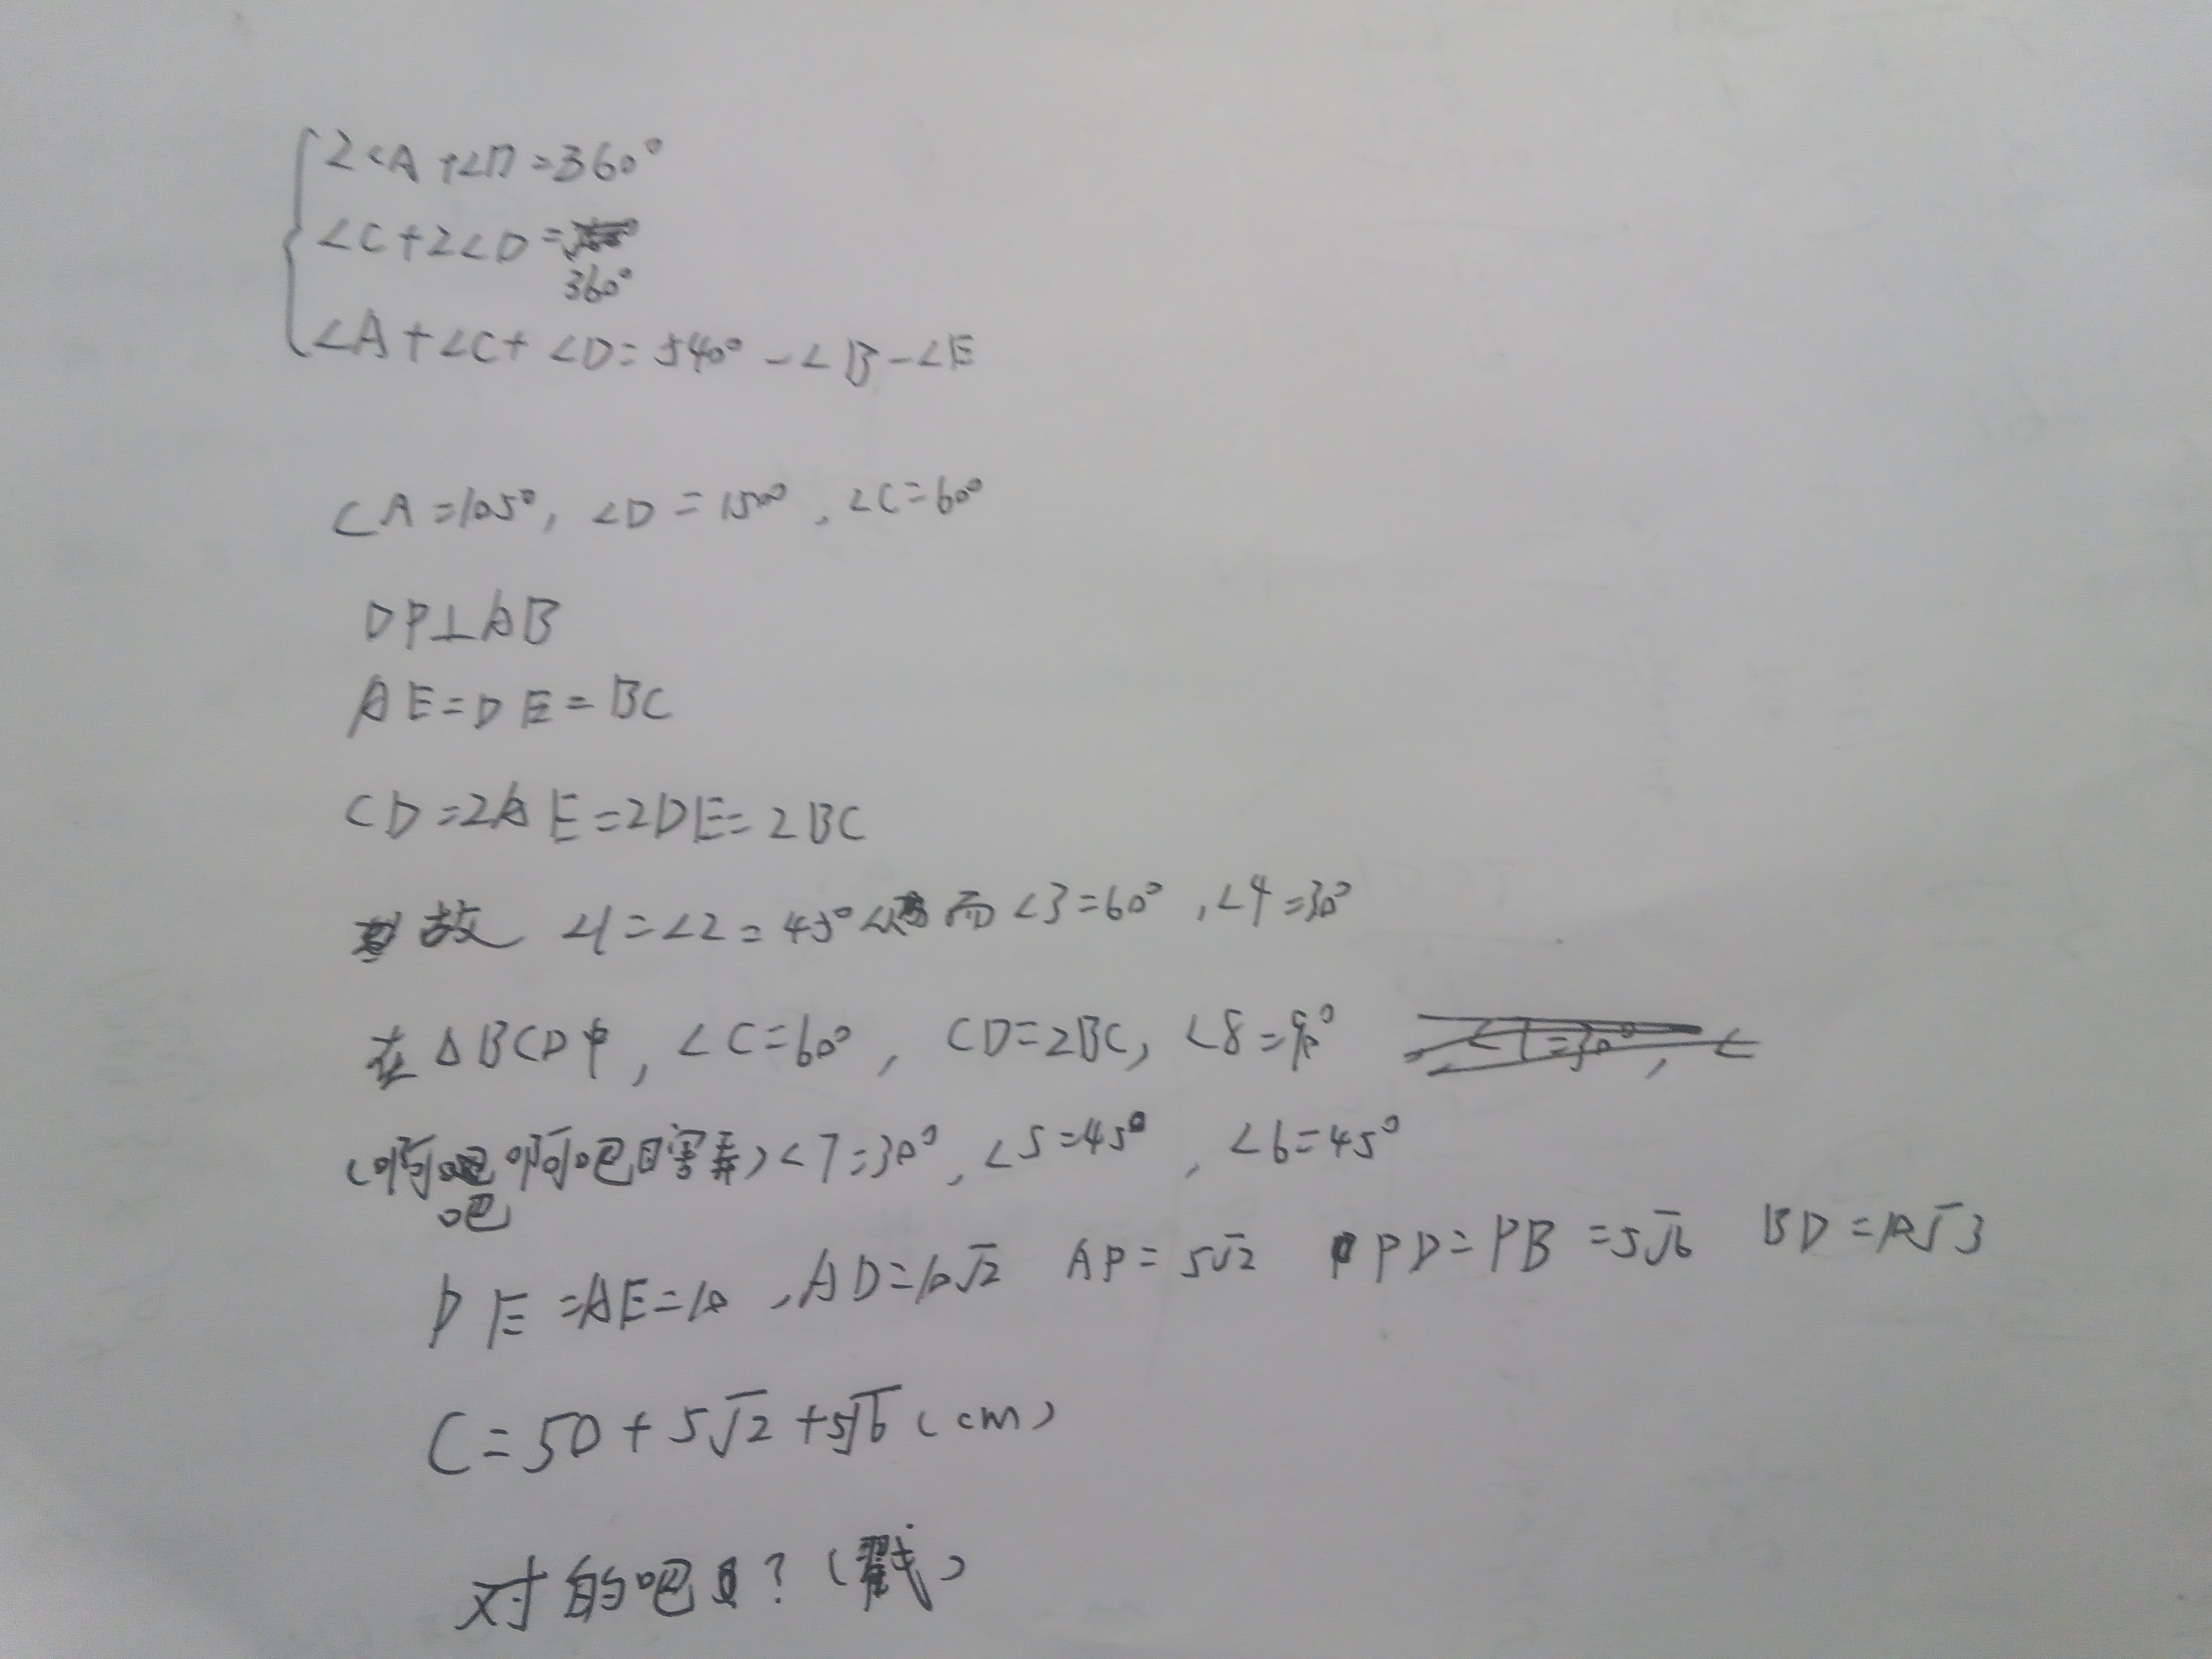 2∠A+∠D=360°
∠C+2∠D=
360°
∠A+∠C+∠D=540°-∠B-∠E
∠A=105°, ∠D=150°, ∠C=60°
DP⊥AB
AE=DE=BC
CD=2AE=2DE=2BC
故 ∠1=∠2=45° 而∠3=60°, ∠4=30°
在△BCD中, ∠C=60°, CD=2BC, ∠8=90°
(啊 啊吧 害弄)∠7=30°, ∠5=45°, ∠6=45°
吧
DE=AE=10, AD=10√2 AP=5√2 PD=PB=5√6 BD=10√3
C=50+5√2+5√6(cm)
对的吧?(戳)